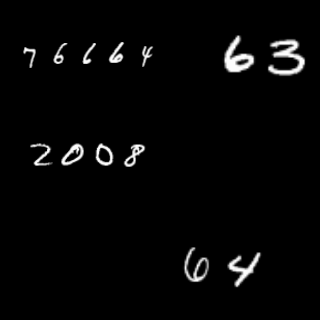 76664
63
2008
64